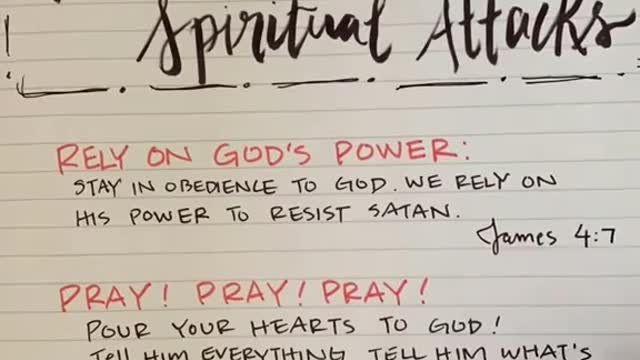 Spiritual Attacks
RELY ON GOD'S POWER:
STAY IN OBEDIENCE TO GOD. WE RELY ON
HIS POWER TO RESIST SATAN.
James 4:7
PRAY! PRAY! PRAY!
POUR YOUR HEARTS TO GOD!
TELL HIM EVERYTHING TELL HIM WHAT'S